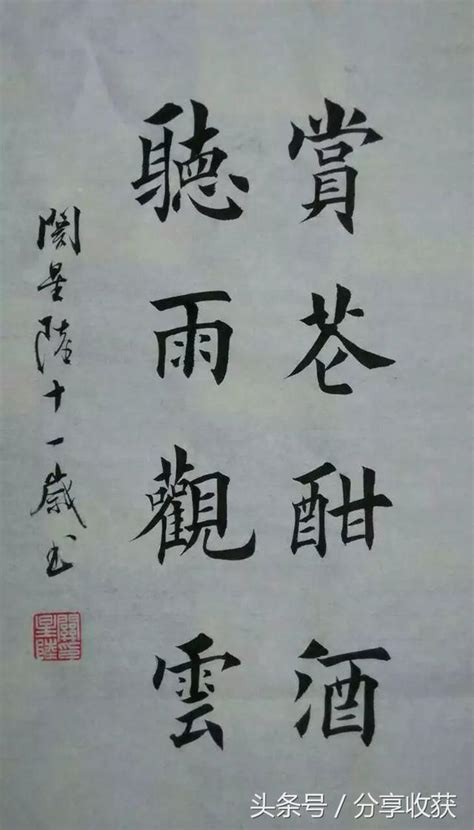 賞花酣酒
聽雨觀雲
闗星陸十一歲书
關印
星陸
头条号 / 分享收获